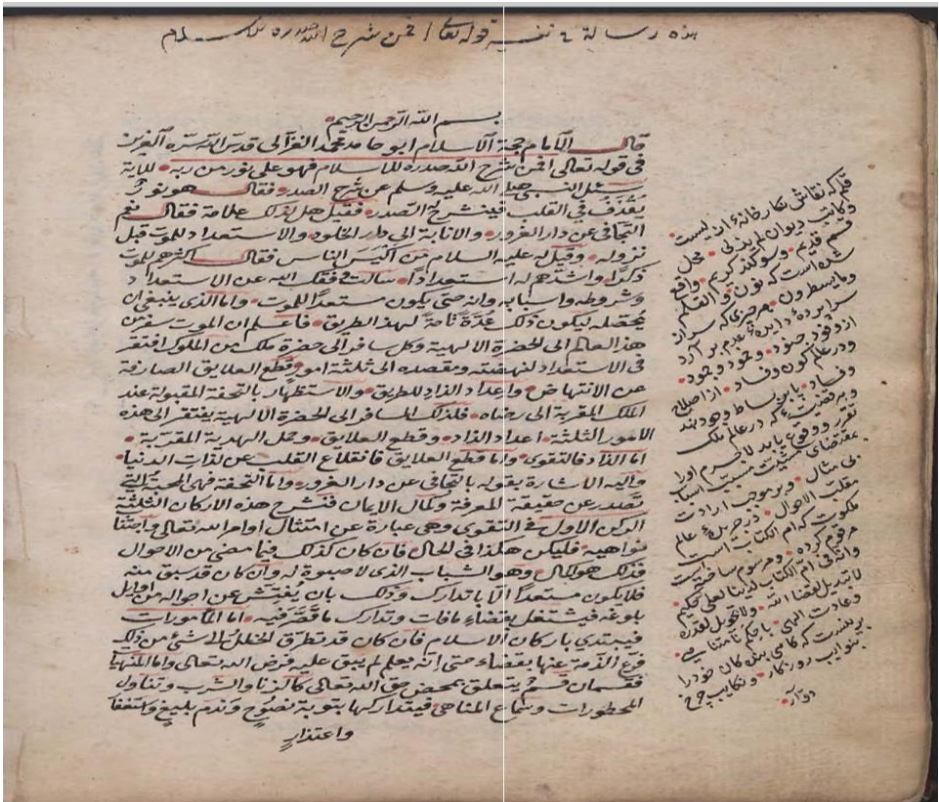 هذه رسالة في تفسير قوله تعالى افمن شرح الله صدره للاسلام
بسم الله الرحمن الرحيم
قال الامام حجة الاسلام ابو حامد محمد الغزالى قدس الله سره العزيز
فى قوله تعالى افمن شرح الله صدره للاسلام فهو على نور من ربه للاية
سئل النبى صلى الله عليه وسلم عن شرح الصدر فقال هو نور
يقذف فى القلب فينشرح له الصدر فقيل هل لذلك علامة فقال نعم
التجافى عن دار الغرور والانابة الى دار الخلود والاستعداد للموت قبل
نزوله وقيل له عليه السلام من اكيس الناس فقال اكثرهم للموت
ذكرا واشدهم له استعدادا سالت وفقك الله عن الاستعداد
وشروطه واسبابه وانه حتى يكون مستعدا للموت واما الذى ينبغى ان
يحصله ليكون ذلك عدة تامة لهذا الطريق فاعلم ان الموت سفر من
هذا العالم الى الحضرة الالهية وكل سافر الى حضرة ملك من الملوك افتقر
فى الاستعداد لنهضته ومقصده الى ثلثة امور قطع العلايق الصارفة
عن الانتهاض واعداد الزاد للطريق والاستظهار بالتحفة المقبولة عند
الملك المقربة الى رضاه فلذلك المسافر الى الحضرة الالهية يفتقر الى هذه
الامور الثلثة اعداد الزاد وقطع العلايق وحمل الهدية المقربة
اما الزاد فالتقوى واما قطع العلايق فانقلاع القلب عن لذات الدنيا
واليه الاشارة بقوله بالتجافى عن دار الغرور واما التحفة فهى المحبة التى
تصدر عن حقيقة المعرفة وكمال الايمان فنشرح هذه الاركان الثلثة
الركن الاول فى التقوى وهى عبارة عن امتثال اوامر الله تعالى واجتنا
نواهيه فليكن هكذا فى الحال فان كان كذلك فيما مضى من الاحوال
فذلك هو الكمال وهو الشباب الذى لا صبوة له وان كان قد سبق منه
فلا يكون مستعدا الا بالتدارك وذلك بان يفتش عن احواله من اوايل
بلوغه فيشتغل بقضاء ما فات وتدارك ما قصر فيه اما المامورات
فيبتدى باركان الاسلام فان كان قد تطرق الخلل الى شئ من ذلك
فرغ الذمة عنها بقضاء حتى انه يعلم لم يبق عليه فرض الله تعالى واما المنهيات
فقسمان قسم يتعلق بمحض حق الله تعالى كالزنا والشرب وتناول
المحظورات وسماع المناهى فيتداركها بتوبة نصوح وندم بليغ واستغفا
واعتذار
قلم كه نقاش نكارخانهٔ ان ليست
وكاتب ديوان لم يزلى محل
قسم قديم وسوكند كريم واقع
شده است كه نون والقلم
وما يسطرون هر چيزى كه از
سراپردهٔ دايرهٔ عدم بر آرد
از وجود
ودر عالم كون وفساد از اصلاح
وفساد باين بساط وجود نهد
كه در عالم ملك
تقرر ووقوع يابد لاجرم اورا
بمقتضاى مشيت
بى مثال وبر موجب ارادت
مقلب الاحوال در جريدهٔ عالم
ملكوت كه ام الكتاب است
مرقوم كرده ومرسوم ساخته
وانه فى ام الكتاب لدينا لعلى حكيم
لا تبديل لقضاء الله ولا تحويل لقدره
وعادت الهى با حكم نامتناهى
كه كاهى بندكان خودرا
بنوايب روزكار ونكايب چرخ
دوار